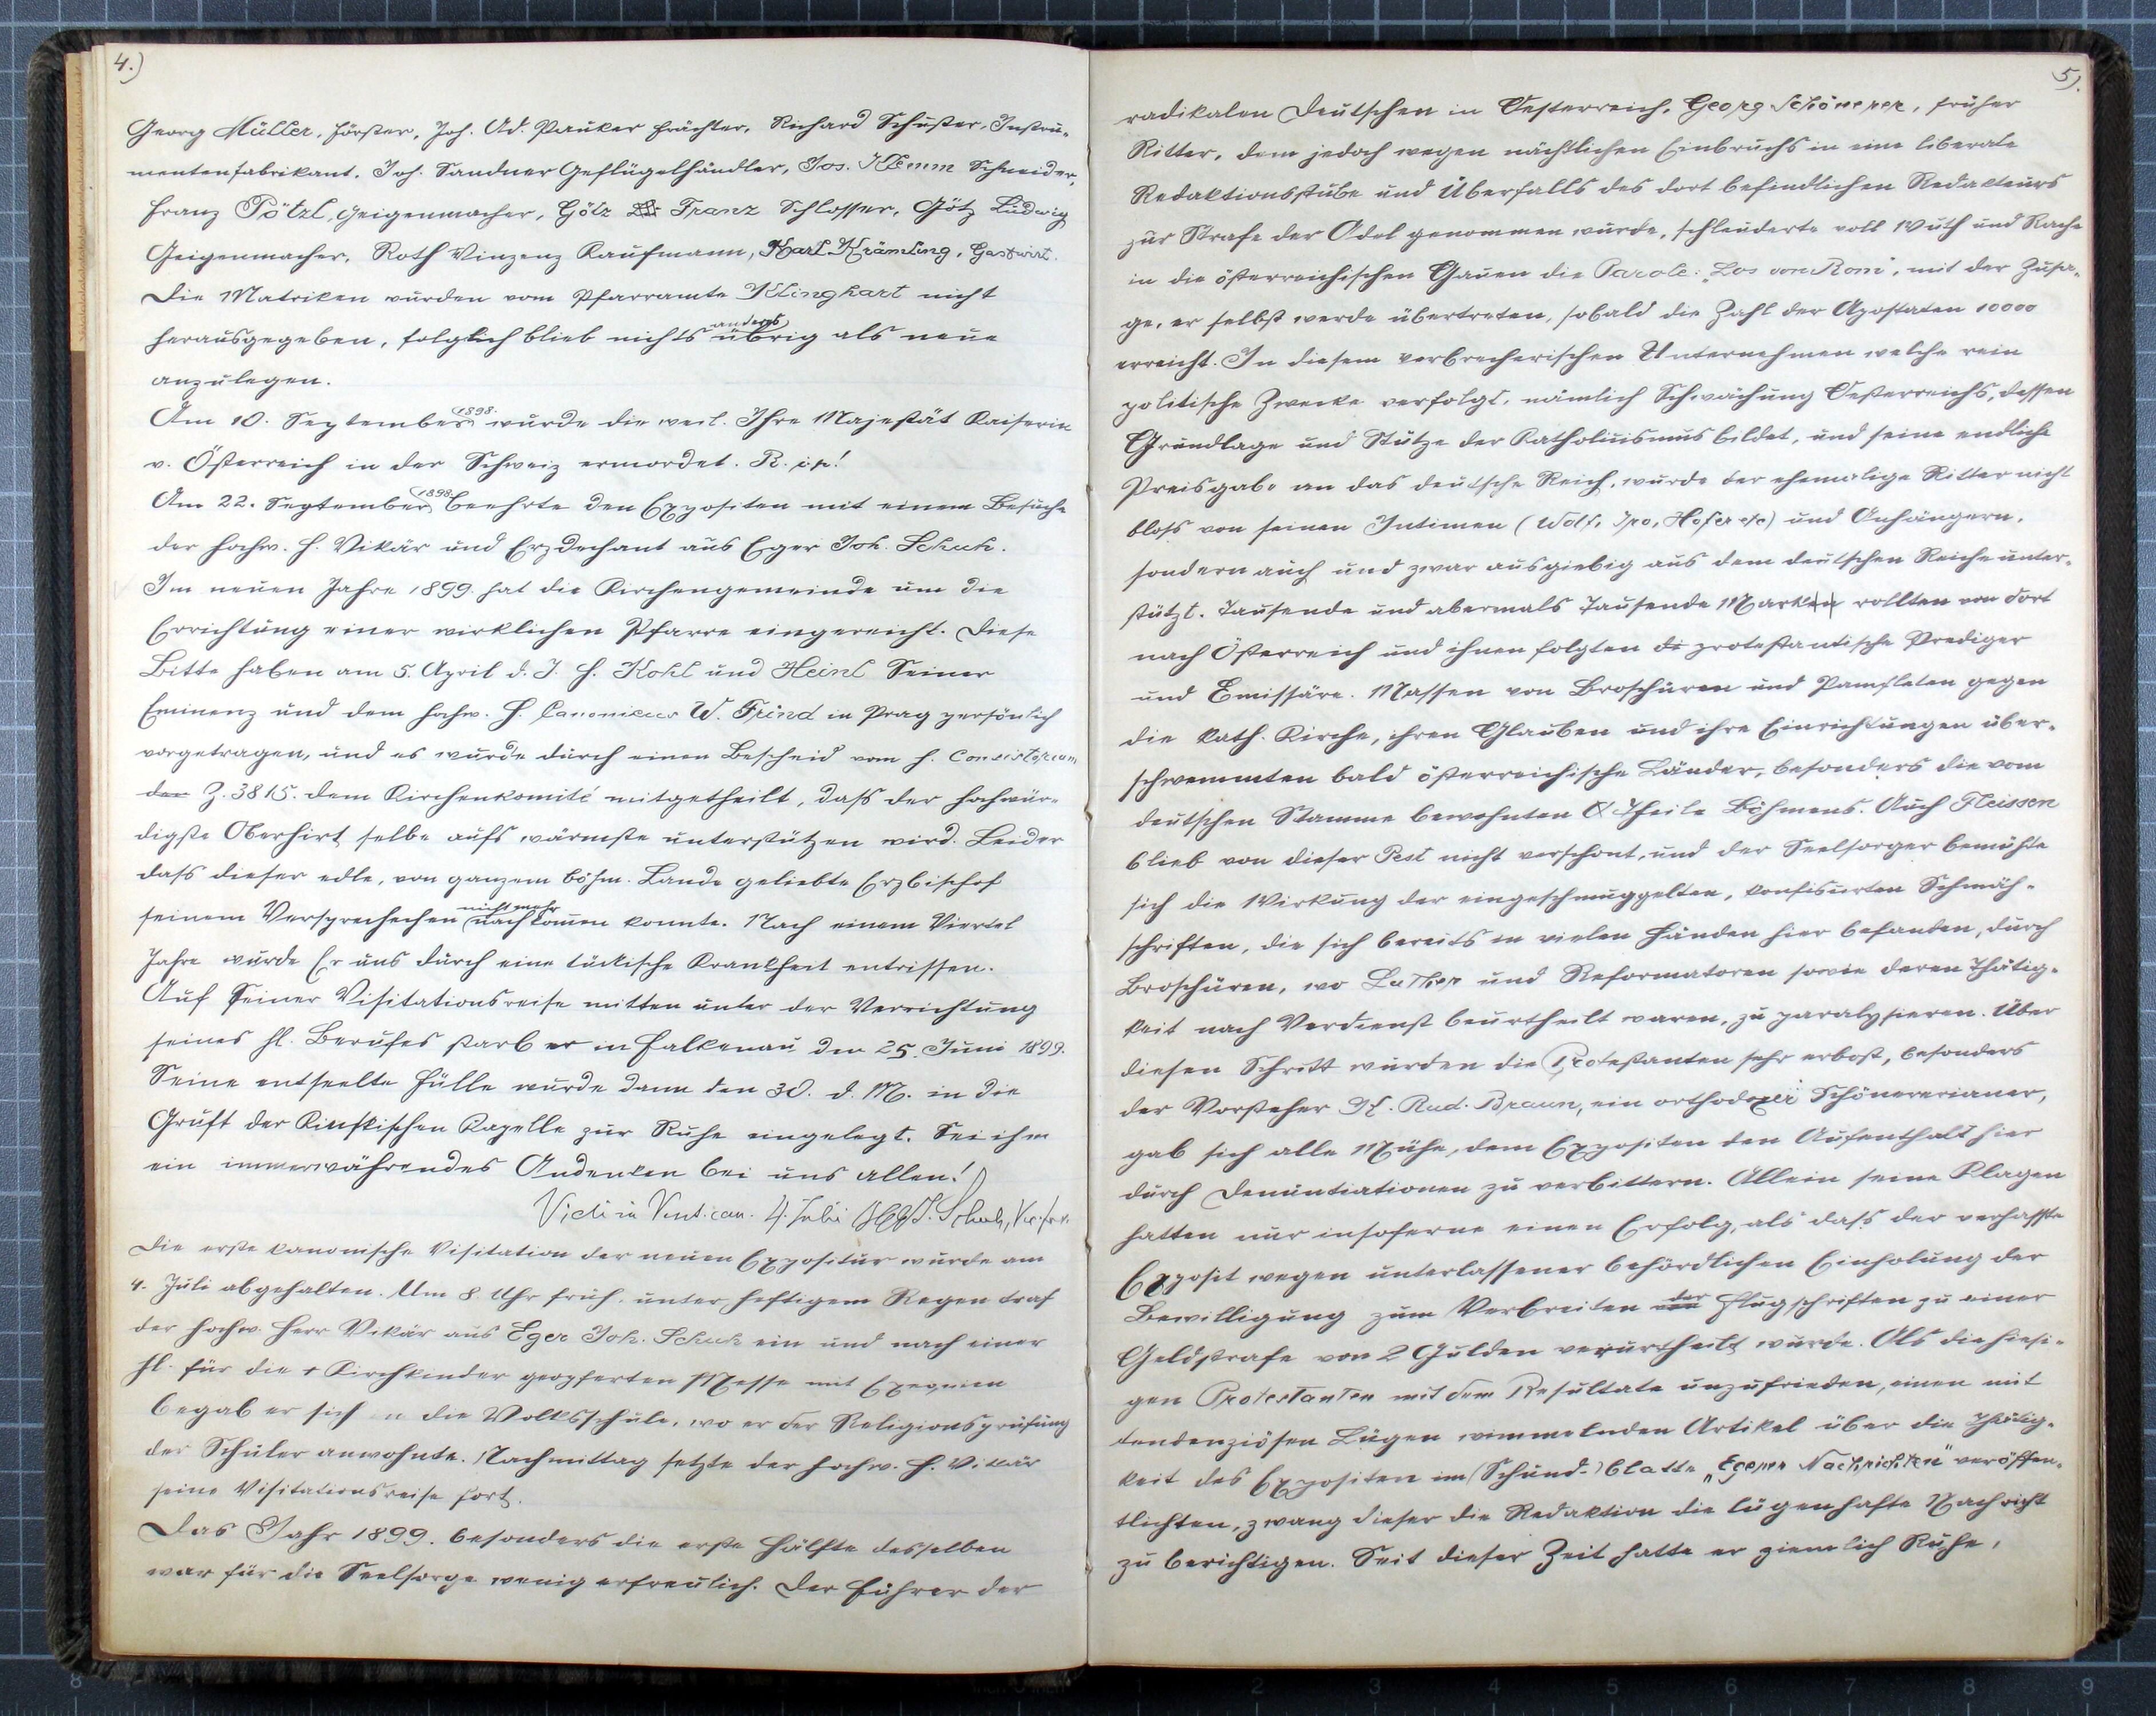 4.)
Georg Müller, Förster, Joh. Ad. Pauker Frächter, Richard Schuster, Instru-
mentenfabrikant. Joh. Sandner Geflügelhändler, Jos. Klemm Schneider,
Franz Pötzl, Geigenmacher, Götz Franz Schlosser, Götz Ludwig
Geigenmacher, Roth Vinzenz Kaufmann, Karl Krämling, Gastwirt.
Die Matriken wurden vom Pfarramte Klinghart nicht
herausgegeben, folglich blieb nichts anderes übrig als neue
anzulegen.
Am 10. September 1898. wurde die weil. Ihre Majestät Kaiserin
v. Österreich in der Schweiz ermordet. R. i. p.!
Am 22. September 1898 beehrte den Expositen mit einem Besuche
der hochw. H. Vikär und Erzdechant aus Eger Joh. Schuh.
Im neuen Jahre 1899. hat die Kirchengemeinde um die
Errichtung einer wirklichen Pfarre eingereicht. Diese
Bitte haben am 5. April d. J. H. Kohl und Heinl Seiner
Eminenz und dem hochw. H. Canonicus W. Frind in Prag persönlich
vorgetragen, und es wurde durch einen Bescheid vom h. Consistorium
den Z. 3815. dem Kirchenkomité mitgetheilt, dass der hochwür-
digste Oberhirt selbe aufs wärmste unterstützen wird. Leider
dass dieser edle, von ganzem böhm. Lande geliebte Erzbischof
seinem Versprechechen nicht mehr nachkommen konnte. Nach einem Viertel
Jahre wurde Er uns durch eine tückische Krankheit entrissen.
Auf Seiner Visitationsreise mitten unter der Verrichtung
seines hl. Berufes starb er in Falkenau den 25. Juni 1899.
Seine entseelte Hülle wurde dann den 30. d. M. in die
Gruft der Kinskischen Kapelle zur Ruhe eingelegt. Sei ihm
ein immerwährendes Andenken bei uns allen!
Vidi in Visit. can. 4. Juli 1899 J. Schuh, Vic. for.
Die erste kanonische Visitation der neuen Expositur wurde am
4. Juli abgehalten. Um 8. Uhr früh, unter heftigem Regen traf
der hochw. Herr Vikär aus Eger Joh. Schuh ein und nach einer
hl. für die + Kirchkinder geopferten Messe mit Exequien
begab er sich in die Volksschule, wo er der Religionsprüfung
der Schüler anwohnte. Nachmittag setzte der hochw. H. Vikär
seine Visitationsreise fort.
Das Jahr 1899. besonders die erste Hälfte desselben
war für die Seelsorge wenig erfreulich. Der Führer der
5).
radikalen Deutschen in Oesterreich, Georg Schönerer, früher
Ritter, dem jedoch wegen nächtlichen Einbruchs in eine liberale
Redaktionsstube und Überfalls des dort befindlichen Redakteurs
zur Strafe der Adel genommen wurde, schleuderte voll Wuth und Rache
in die österreichischen Gauen die Parole: „Los von Rom", mit der Zusa-
ge, er selbst werde übertreten, sobald die Zahl der Apostaten 10000
erreicht. In diesem verbrecherischen Unternehmen welche rein
politische Zwecke verfolgt, nämlich Schwächung Oesterreichs, dessen
Grundlage und Stütze der Katholicismus bildet, und seine endliche
Preisgabe an das deutsche Reich, wurde der ehemalige Ritter nicht
bloss von seinen Intimen (Wolf, Iro, Hofer etc) und Anhängern,
sondern auch und zwar ausgiebig aus dem deutschen Reiche unter-
stützt. Tausende und abermals Tausende Marken rollten von dort
nach Österreich und ihnen folgten di protestantische Prediger
und Emissäre. Massen von Broschüren und Pamfleten gegen
die kath. Kirche, ihren Glauben und ihre Einrichtungen über-
schwemmten bald österreichische Länder, besonders die vom
deutschen Stamme bewohnten Theile Böhmens. Auch Fleissen
blieb von dieser Pest nicht verschont, und der Seelsorger bemühte
sich die Wirkung der eingeschmuggelten, konfiscierten Schmäh-
schriften, die sich bereits in vielen Händen hier befanden, durch
Broschüren, wo Luther und Reformatoren sowie deren Thätig-
keit nach Verdienst beurtheilt waren, zu paralysieren. Über
diesen Schritt wurden die Protestanten sehr erbost, besonders
der Vorsteher H. Rud. Braun, ein orthodoxer Schönererianer,
gab sich alle Mühe, dem Expositen den Aufenthalt hier
durch Denuntiationen zu verbittern. Allein seine Klagen
hatten nur insoferne einen Erfolg, als dass der verhasste
Exposit wegen unterlassener behördlichen Einholung der
Bewilligung zum Verbreiten von der Flugschriften zu einer
Geldstrafe von 2 Gulden verurtheilt wurde. Als die hiesi-
gen Protestanten mit dem Resultate unzufrieden, einen mit
tendenziösen Lügen wimmelnden Artikel über die Thätig-
keit des Expositen im (Schund-) Blatte „Egerer Nachrichten" veröffen-
tlichten, zwang dieser die Redaktion die lügenhafte Nachricht
zu berichtigen. Seit dieser Zeit hatte er ziemlich Ruhe,
8
1 2 3 4 5 6 7 8 9